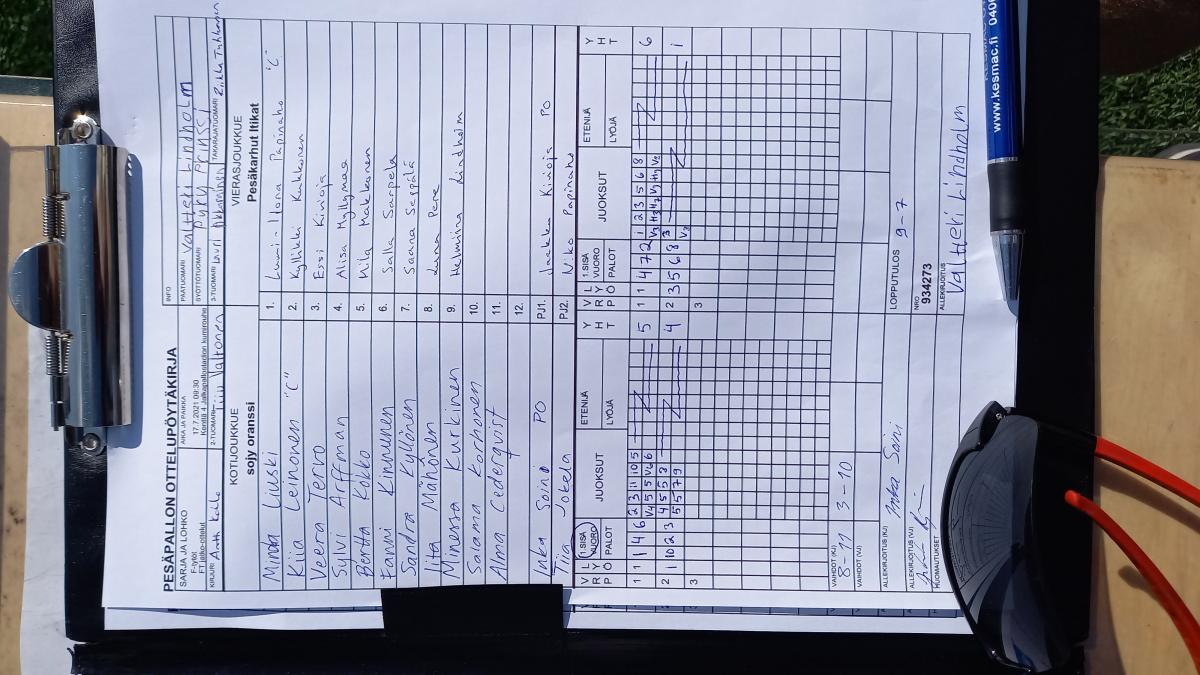 PESÄPALLON OTTELUPÖYTÄKIRJA
SARJA JA LOHKO
F-tytöt
FT jatko-ottelut
AIKA JA PAIKKA
17.7.2021 09:30
INFO
PÄÄTUOMARI Valtteri Lindholm
SYÖTTÖTUOMARI Pyry Prinssi
KIRJURI
2-TUOMARI Valtonen
3-TUOMARI Lauri
TAKARAJATUOMARI
KOTIJOUKKUE
sojy oranssi
VIERASJOUKKUE
Pesäkarhut Itikat
Minda Liuski 1. Lumi-Ilona Papinaho "C"
Kiia Leinonen "C" 2. Kyllikki Kukkonen
Veera Tervo 3. Essi Kivioja
Sylvi Arffman 4. Alisa Myllymaa
Bertta Kokko 5. Mila Makkonen
Fanni Kinnunen 6. Salla Saarela
Sandra Kyllönen 7. Saana Seppälä
Iita Mähönen 8.
Minessa Kurkinen 9. Helmiina Lindholm
Salama Korhonen 10.
Alma Cederqvist 11.
12.
Inka Soini PO PJ1. Jaakko Kivioja PO
Tiia Jokela PJ2. Niko Papinaho
V R P L Y Ö 1.SISÄ VUORO PALOT JUOKSUT ETENIJÄ LYÖJÄ Y H T V R P L Y Ö 1.SISÄ VUORO PALOT JUOKSUT ETENIJÄ LYÖJÄ Y H T
1 1 1 4 6 2 3 11 10 5 5 1 1 4 7 2 1 2 3 5 6 8 6
V4 5 5 V6 6
2 1 10 2 3 4 5 5 3 4 2 3 5 6 8 3 1
5 5 7 9
3 3
VAIHDOT (KJ)
8-11 3-10
VAIHDOT (VJ)
ALLEKIRJOITUS (KJ) Inka Soini
LOPPUTULOS 9-7
ALLEKIRJOITUS (VJ)
NRO
934273
HUOMAUTUKSET
ALLEKIRJOITUS
Valtteri Lindholm
www.kesmac.fi